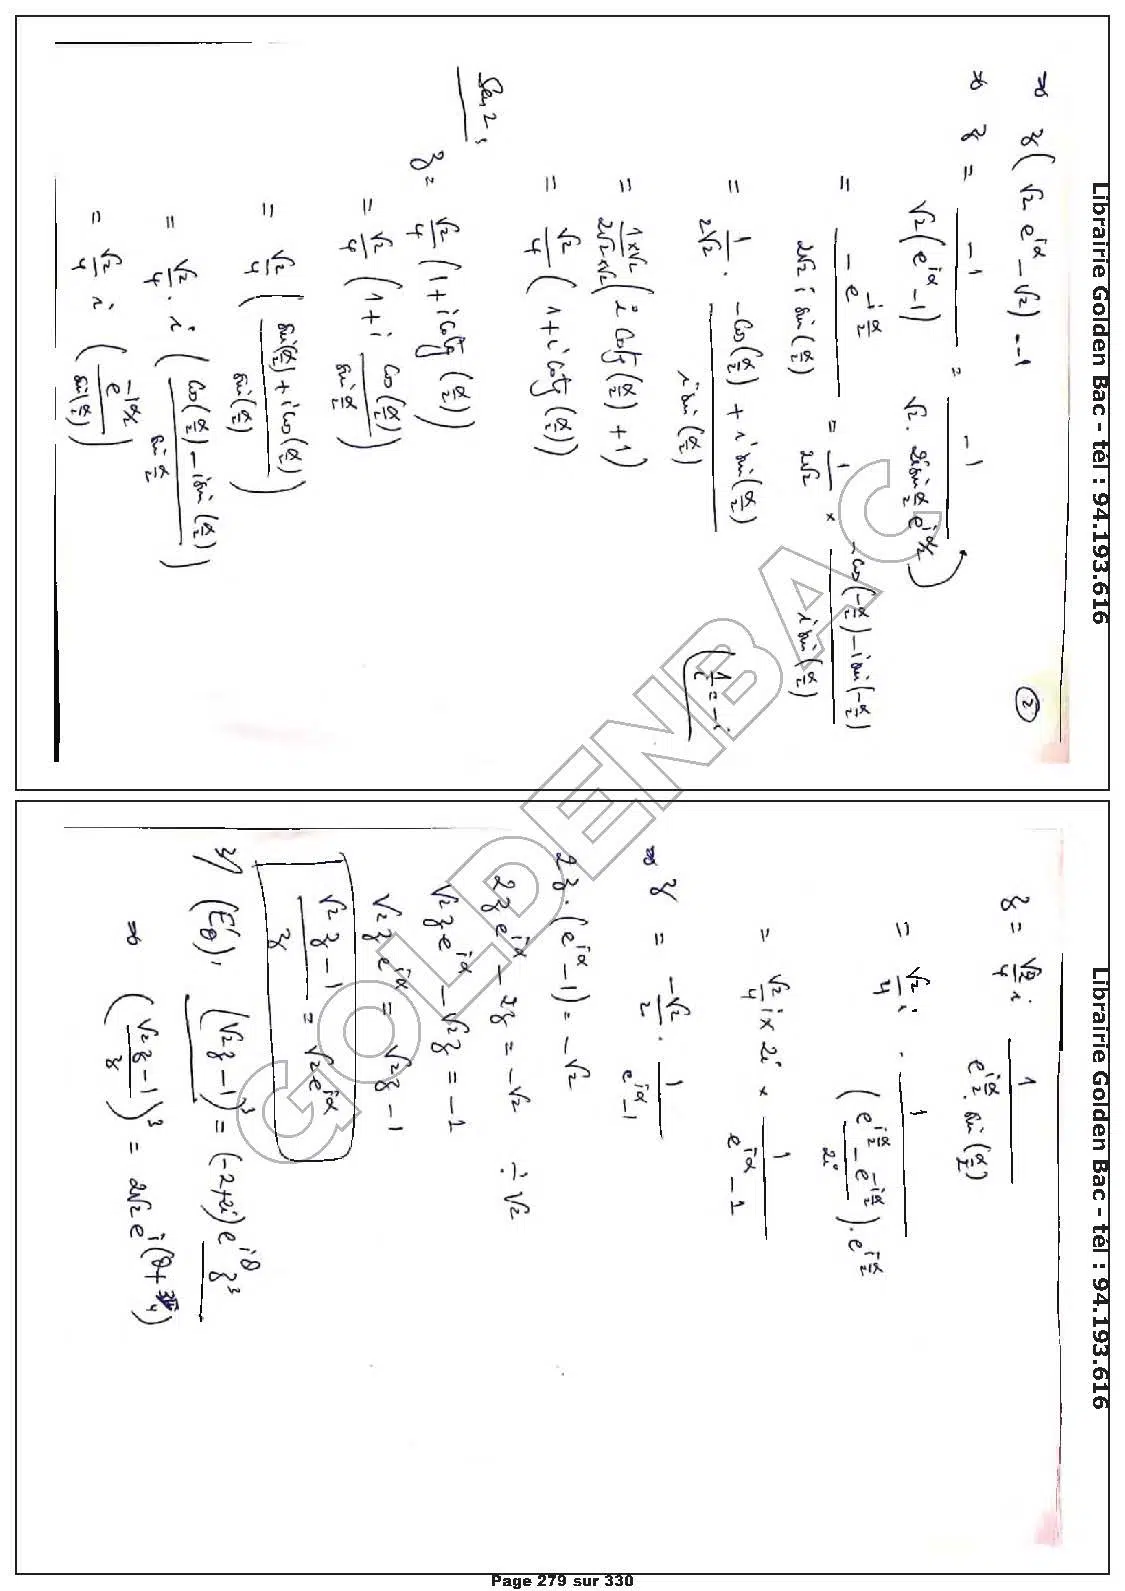 Librairie Golden Bac - tél : 94.193.616
②
⇒ z(√2 e^{iα} − √2) = −1
⇒ z = −1 / √2(e^{iα} − 1) = −1 / √2 · 2i sin α/2 e^{iα/2}
= − e^{−iα/2} / 2√2 i sin(α/2) = 1/2√2 × −cos(−α/2) − i sin(−α/2) / i sin(α/2)
= 1/2√2 · −cos(α/2) + i sin(α/2) / i sin(α/2) (1/i = −i
= 1×√2 / 2√2×√2 (i cotg(α/2) + 1)
= √2/4 (1 + i cotg(α/2))
z = √2/4 (1 + i cotg(α/2))
= √2/4 (1 + i cos(α/2) / sin α/2)
= √2/4 (sin(α/2) + i cos(α/2) / sin(α/2))
= √2/4 · i (cos(α/2) − i sin(α/2) / sin α/2)
= √2/4 i (e^{−iα/2} / sin(α/2))
Librairie Golden Bac - tél : 94.193.616
z = √2/4 i 1 / e^{iα/2} · sin(α/2)
= √2/4 i · 1 / (e^{iα/2} − e^{−iα/2} / 2i) · e^{iα/2}
= √2/4 i × 2i × 1 / e^{iα} − 1
⇒ z = −√2/2 · 1 / e^{iα} − 1
2z · (e^{iα} − 1) = −√2
2z e^{iα} − 2z = −√2 ÷ √2
√2 z e^{iα} − √2 z = −1
√2 z e^{iα} = √2 z − 1
√2 z − 1 / z = √2 e^{iα}
3/ (E'θ): (√2 z − 1)³ = (−2+2i) e^{iθ} z³
⇒ (√2 z − 1 / z)³ = 2√2 e^{i(θ + 3π/4)}
GOLDENBAC
Page 279 sur 330